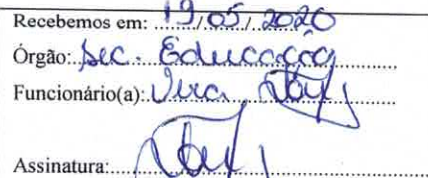 Recebemos em: 19/05/2020
Órgão: Sec. Educação
Funcionário(a): Vera
Assinatura: